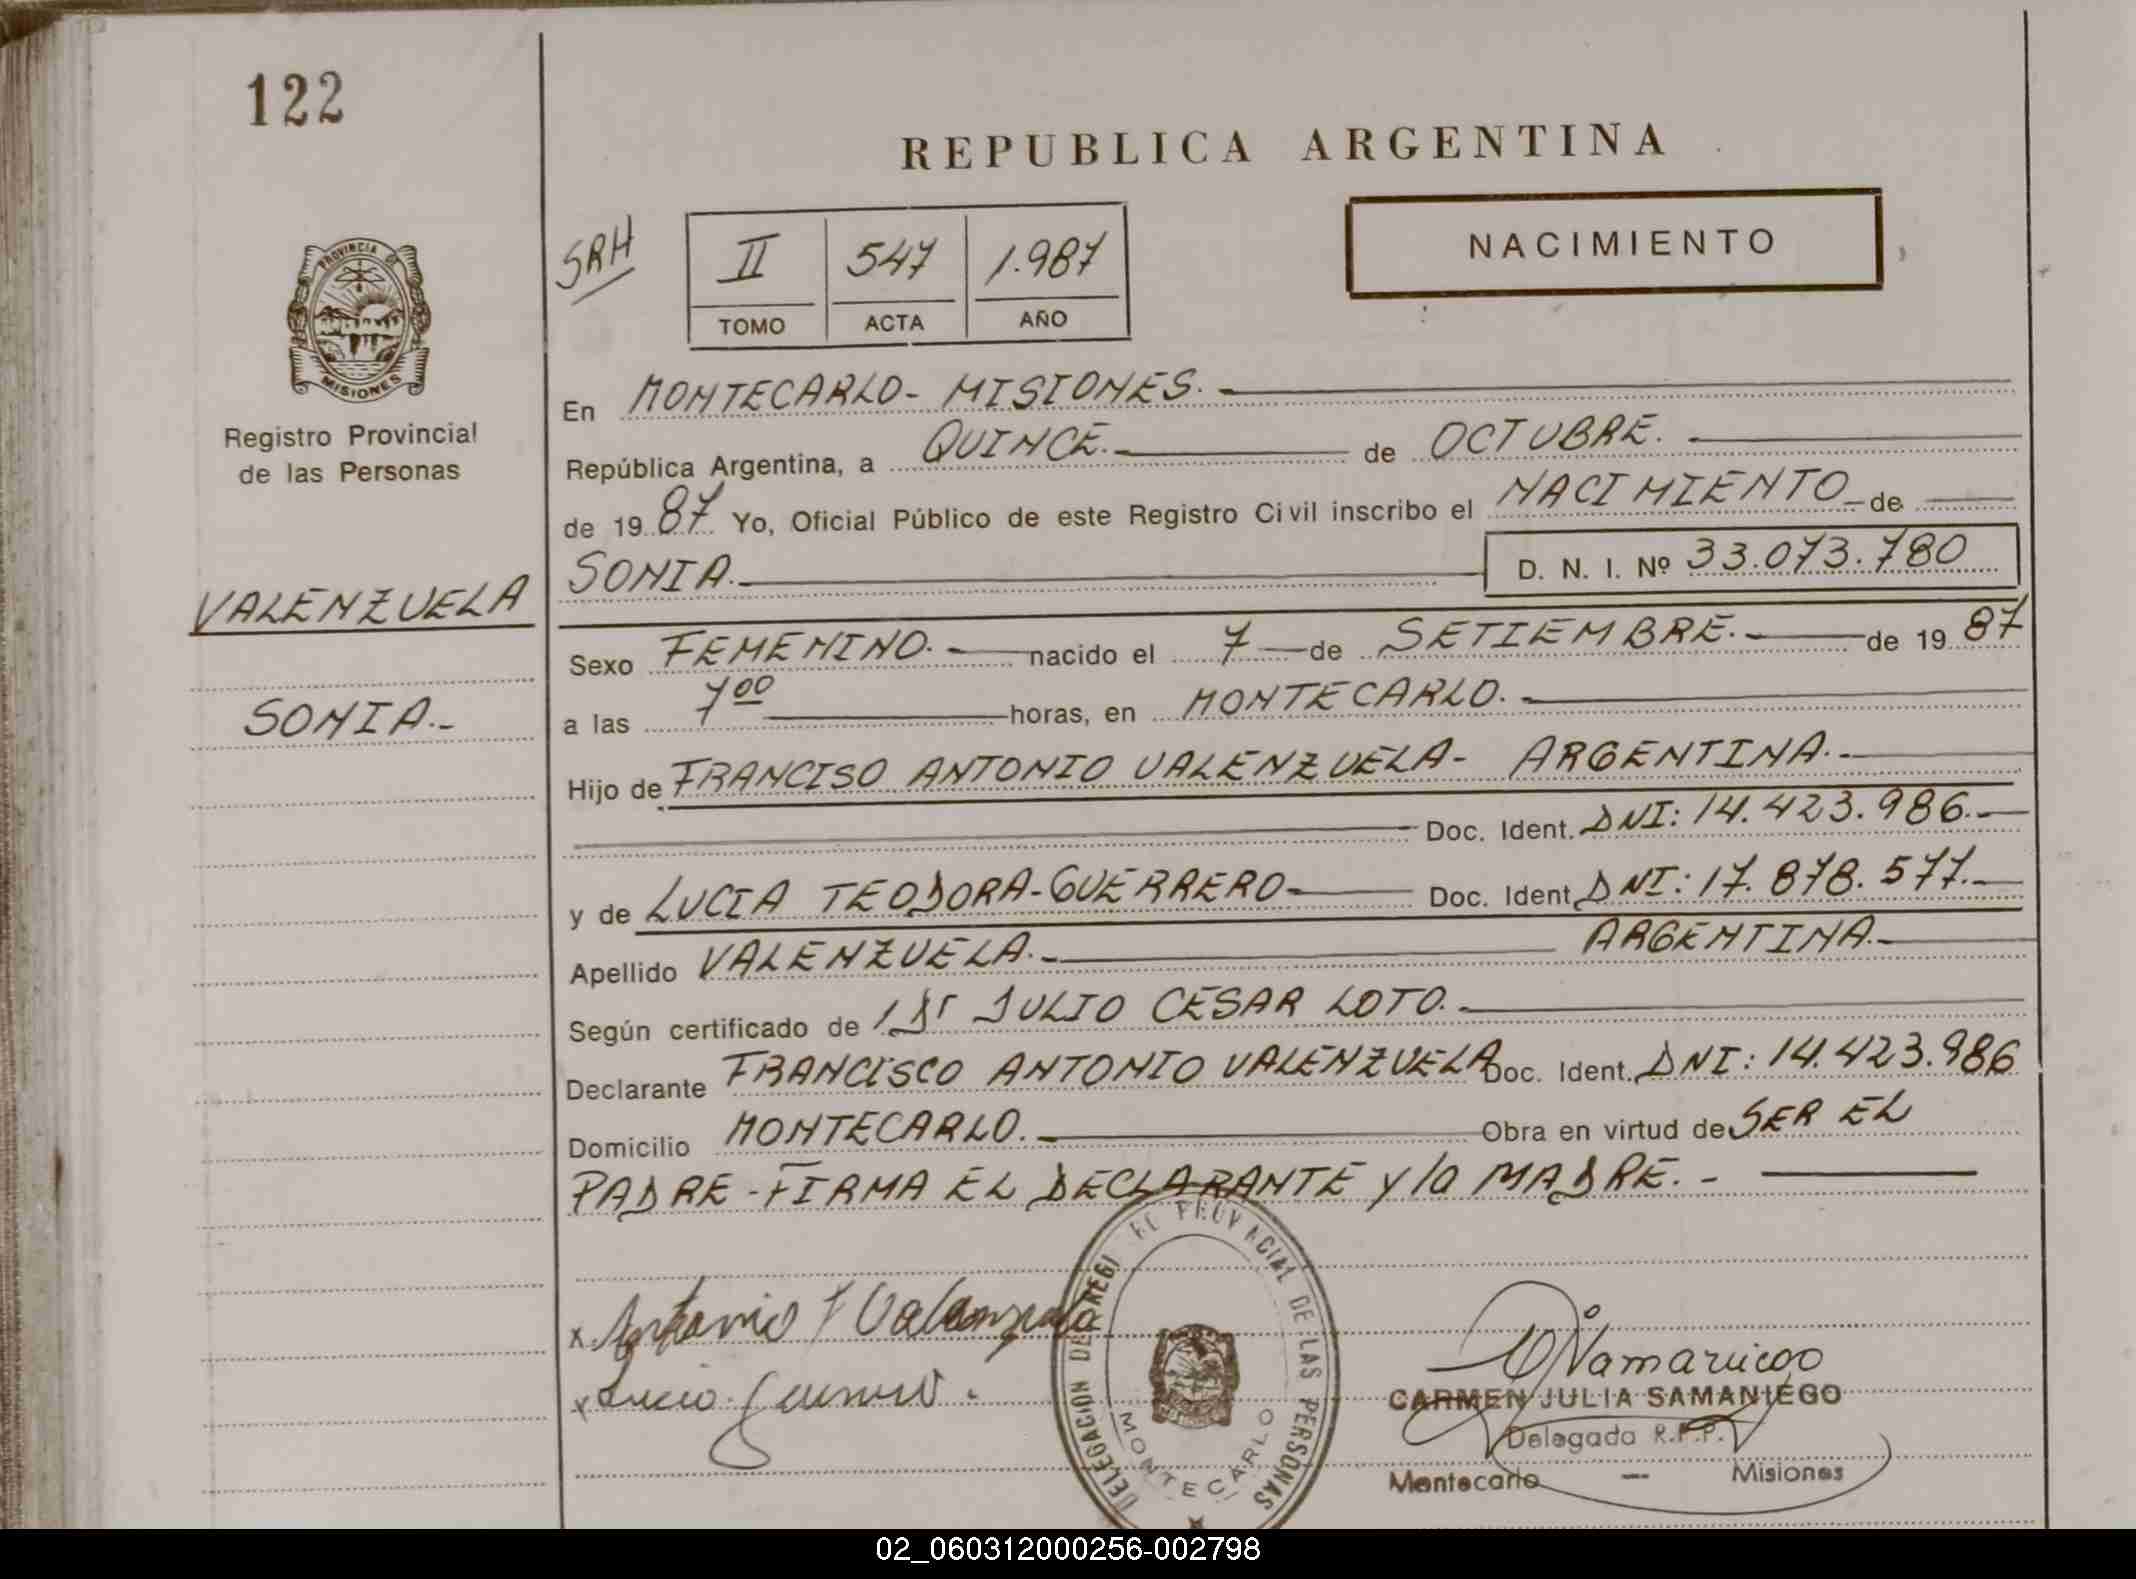 122
REPUBLICA ARGENTINA
SRH
II 547 1.987
TOMO ACTA AÑO
NACIMIENTO
PROVINCIA DE
MISIONES
Registro Provincial
de las Personas
VALENZUELA
SONIA.-
En MONTECARLO- MISIONES.
República Argentina, a QUINCE. de OCTUBRE.
de 1987. Yo, Oficial Público de este Registro Civil inscribo el NACIMIENTO de
SONIA. D. N. I. Nº 33.073.780
Sexo FEMENINO. nacido el 7 de SETIEMBRE. de 1987
a las 7 00 horas, en MONTECARLO.
Hijo de FRANCISO ANTONIO VALENZUELA- ARGENTINA.
Doc. Ident. DNI: 14.423.986.
y de LUCIA TEODORA-GUERRERO Doc. Ident. DNI: 17.878.577.
Apellido VALENZUELA. ARGENTINA.
Según certificado de Dr JULIO CESAR LOTO.
Declarante FRANCISCO ANTONIO VALENZUELA Doc. Ident. DNI: 14.423.986
Domicilio MONTECARLO. Obra en virtud de SER EL
PADRE-FIRMA EL DECLARANTE y la MADRE.-
x Antonio F Valenzuela
x Lucia Guerrero.
DELEGACION DEL REGI RO PROVINCIAL DE LAS PERSONAS
MONTECARLO
CARMEN JULIA SAMANIEGO
Delegada R.P.P.
Montecarlo — Misiones
02_060312000256-002798